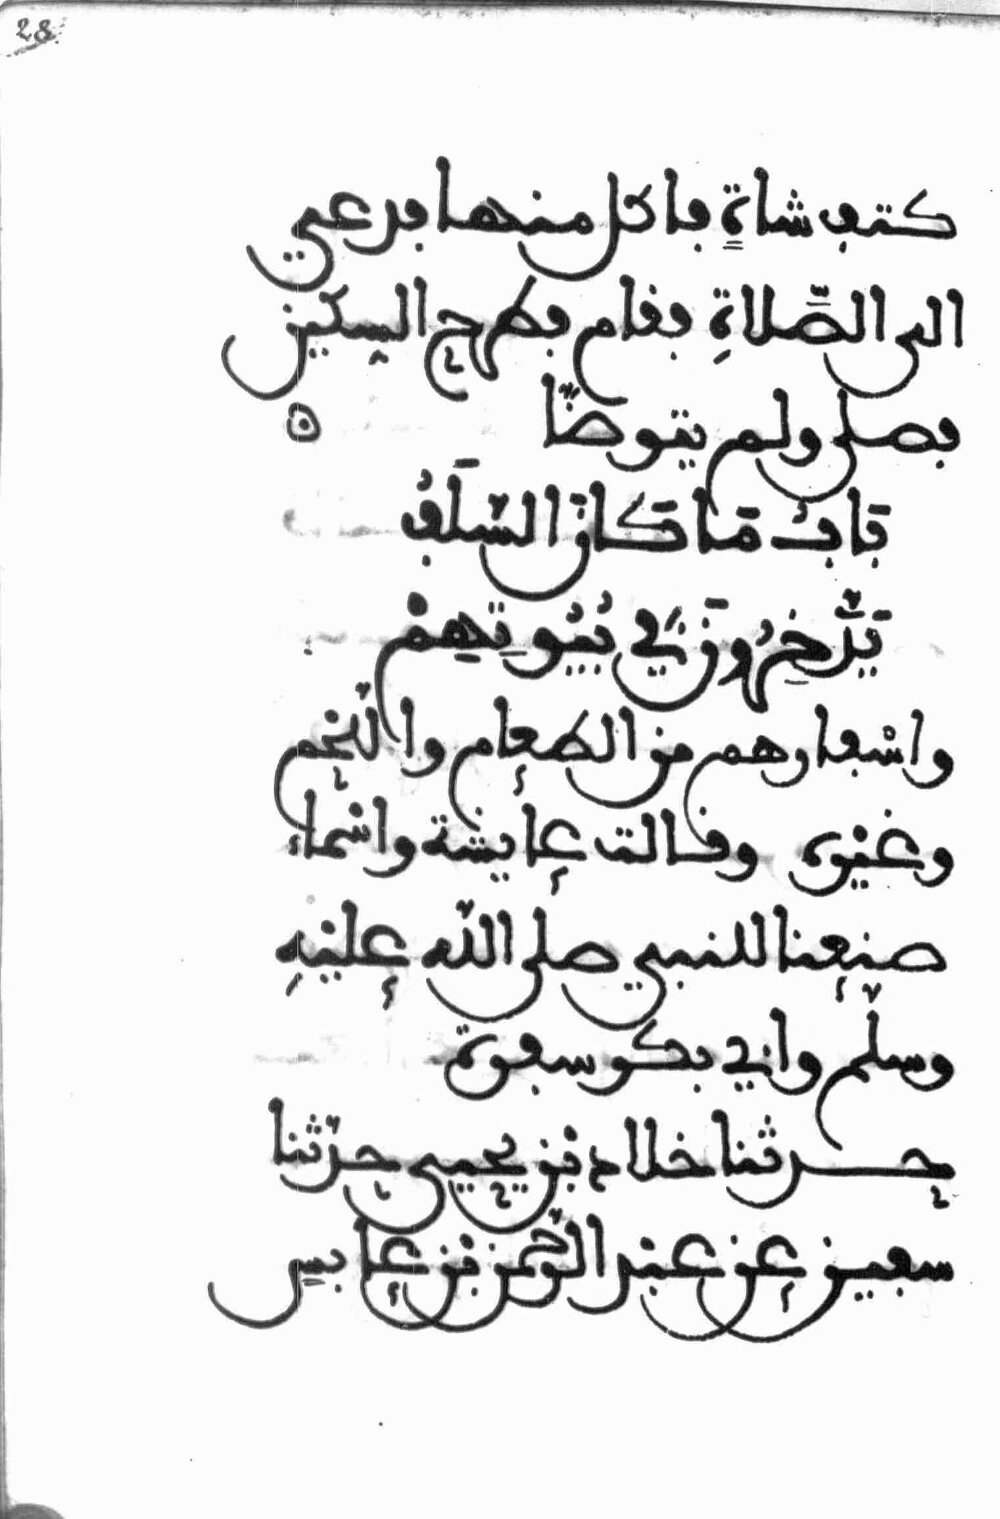 28
كتف شاة فاكل منها فدعي
الى الصّلاةِ فقام فطرح السِكين
فصلى ولم يتوضّأ
بَابُ مَا كَانَ السَّلَفُ
يَدَّخِرُونَ فِي بُيُوتِهِمْ
واسْفارهم من الطعام واللّحْم
وغيْره وقالت عايشة واسْماء
صنعنا للنبي صلى اللّه عليْهِ
وسلّم وابي بكر سفرة
حدثنا خلاد بْن يحيى حدّثنا
سفين عن عبْد الرّحْمن بْن عابِس